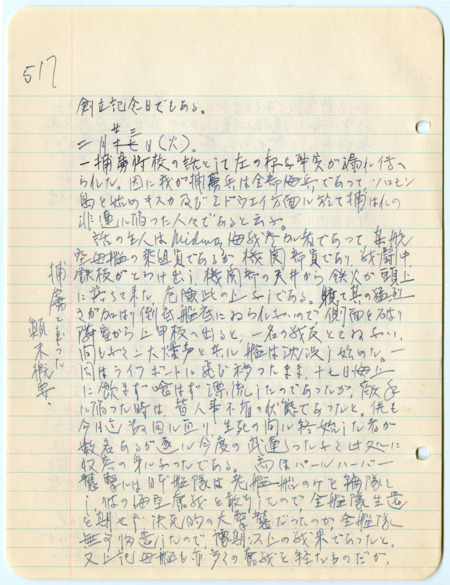 517
創立記念日でもある。
二月廿三日(火)。
一捕虜将校の話として左の様な事実が漏れ伝へ
られた。因に我が捕虜兵は全部海兵であって、ソロモン
島を始めキスカ及びミドウエイ方面に於て捕はれの
非運に陥った人々であると云ふ。
話の主人はMidway海戦参加者であって、某航
空母艦の乗組員であるが機関部員であり、戦闘中
鉄板がとろけ出し機関部の天井から鉄火が頭上
に落ちて来た。危険此の上ナシである。
さが加はり到底艦底にねられないので側面を破り
隣室から上甲板へ出ると、一名の戦友とてねない。
間もなく二大爆声と共に艦は沈没し始めた。一
同はライフボートに飛び移ったまま、十七日海上
に飲まず喰はず漂流したのであったが、敵手
に陥った時は、皆人事不省の状態であったと。
今日迄数回に亘り、生死の間に終始した者が
数名あるが遂に今度の武運つたなく
の身となったである。尚ほパールハーバー
襲撃には日本艦隊は
し、彼の海空
を期せず決死的の大襲撃だったのが、全艦隊
無事帰還したので、予期以上の戦果であったと。
又上記母艦も亦多くの海戦を経たものだが、
捕虜となった
顛末概要。